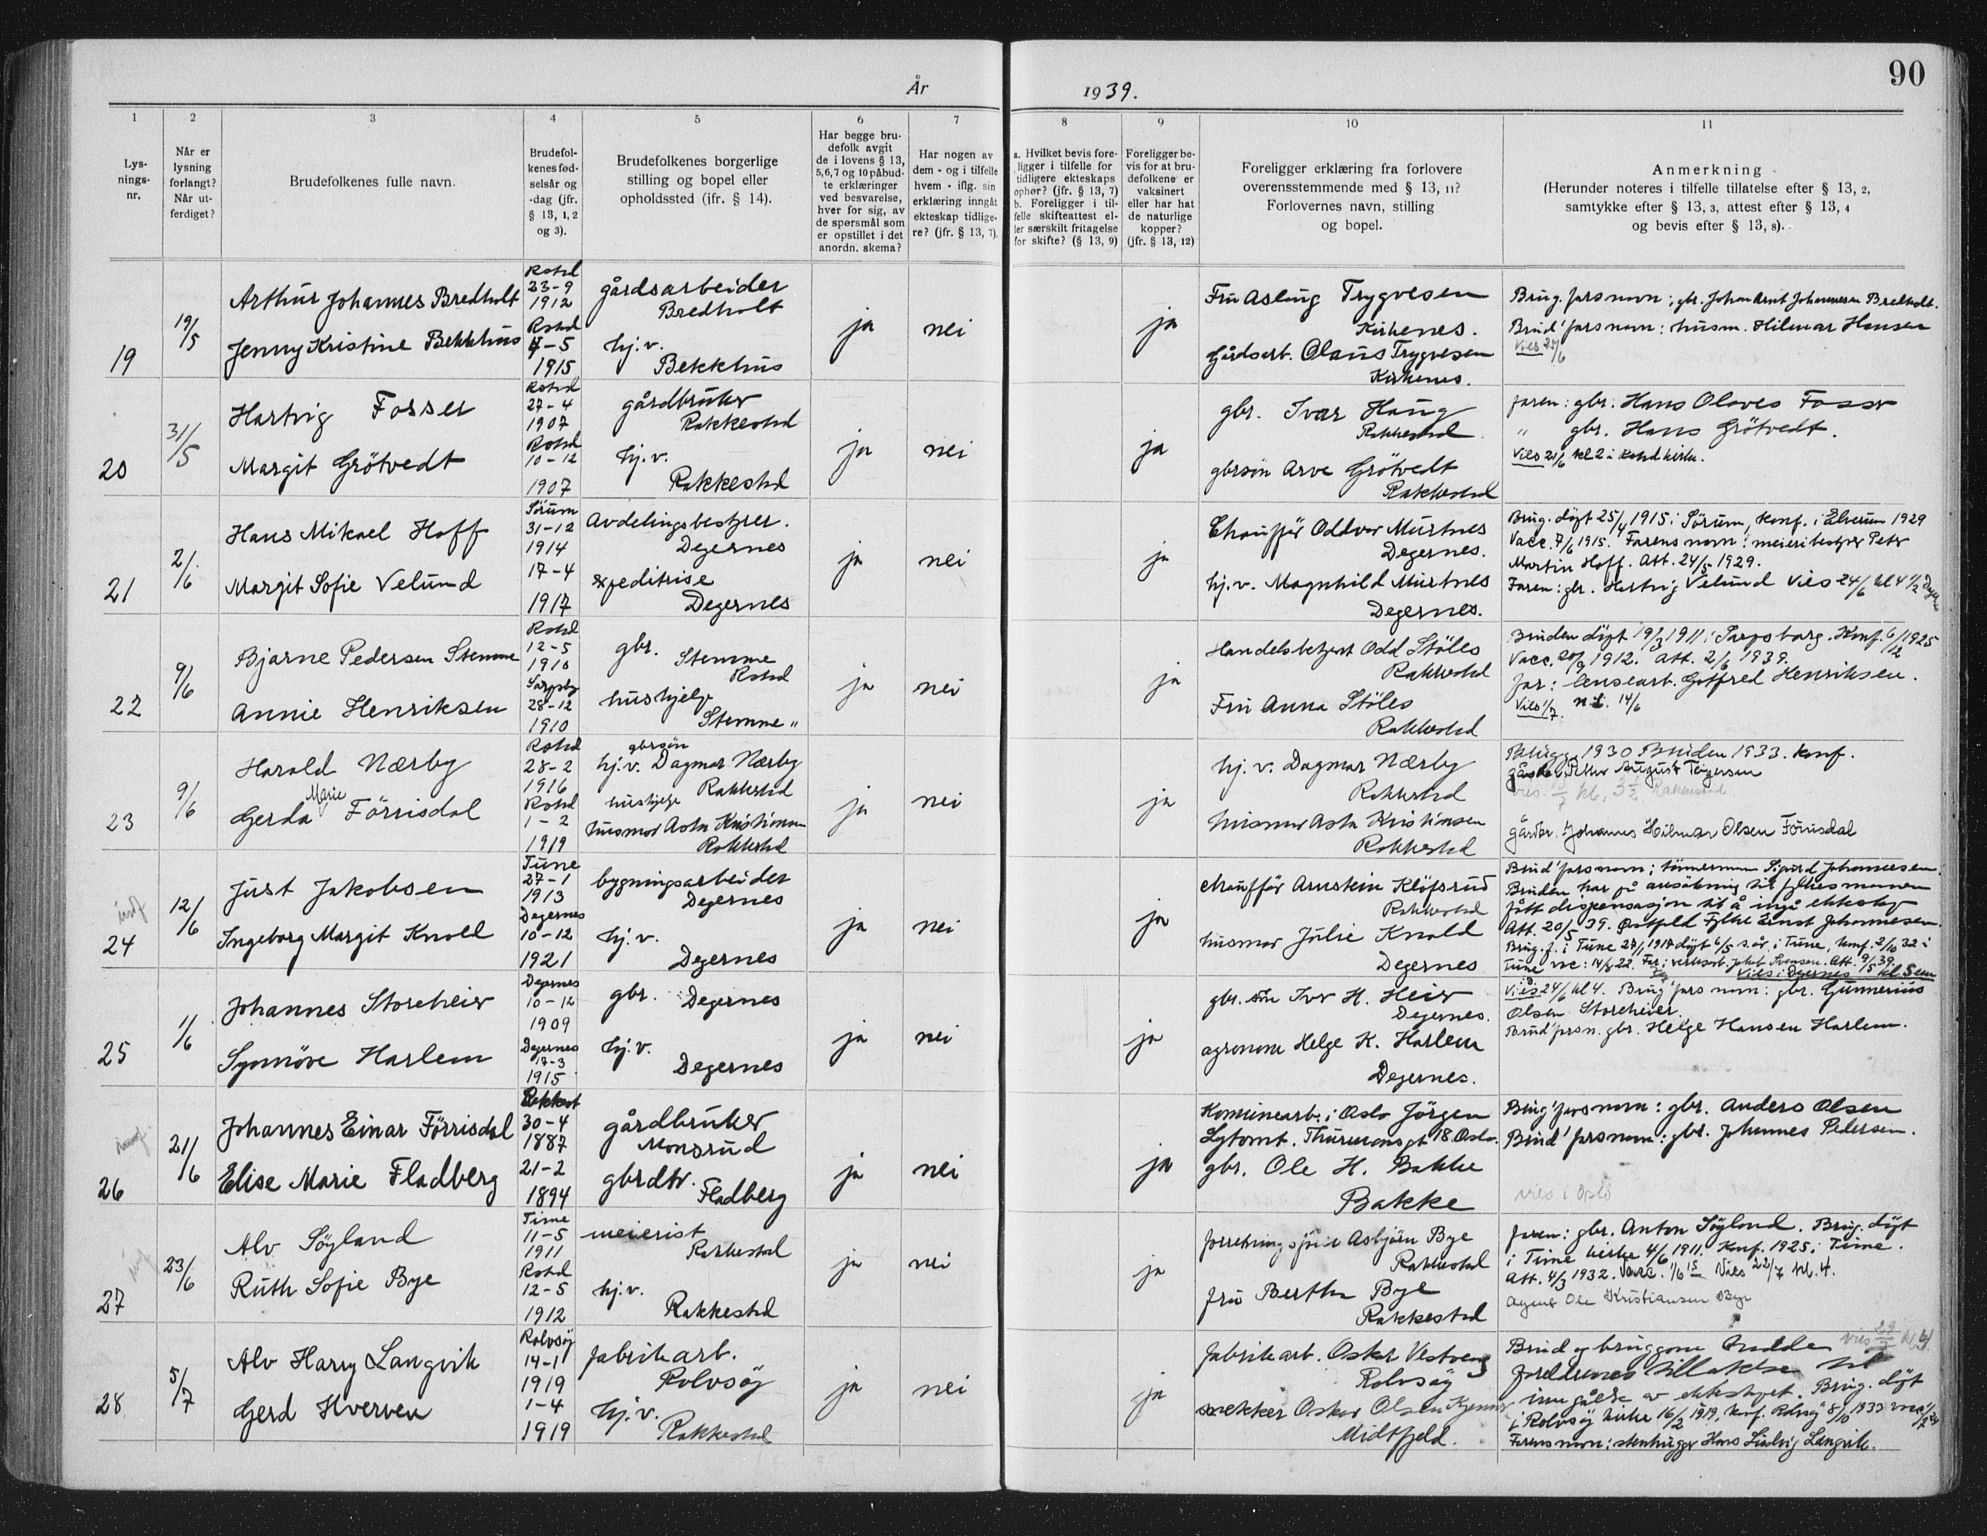 År 1939.
90
1 2 3 4 5 6 7 8 9 10 11
Lys-
nings-
nr.
Når er
lysning
forlangt?
Når ut-
ferdiget?
Brudefolkenes fulle navn.
Brudefol-
kenes fød-
selsår og
-dag (jfr.
§ 13, 1, 2
og 3).
Brudefolkenes borgerlige
stilling og bopel eller
opholdssted (ifr. § 14).
Har begge bru-
defolk avgit
de i lovens § 13,
5,6,7 og 10 påbud-
te erklæringer
ved besvarelse,
hver for sig, av
de spørsmål som
er opstillet i det
anordn. skema?
Har nogen av
dem - og i tilfelle
hvem - iflg. sin
erklæring inngåt
ekteskap tidlige-
re? (jfr. § 13, 7).
a. Hvilket bevis fore-
ligger i tilfelle for
tidligere ekteskaps
ophør? (jfr. § 13, 7)
b. Foreligger i til-
felle skifteattest el-
ler særskilt fritagelse
for skifte? (§ 13, 9)
Foreligger be-
vis for at bru-
defolkene er
vaksinert
eller har hat
de naturlige
kopper?
(jfr. § 13, 12)
Foreligger erklæring fra forlovere
overensstemmende med § 13, 11?
Forlovernes navn, stilling
og bopel.
Anmerkning
(Herunder noteres i tilfelle tillatelse efter § 13, 2,
samtykke efter § 13, 3, attest efter § 13, 4
og bevis efter § 13, 8).
19
19/5
Arthur Johannes Bredholt
Jenny Kristine Bekkhus
Rakst
23-9
1912
Rakst
4-5
1915
gårdsarbeider
Bredholt
hj.v.
Bekkhus
ja
nei
ja
Fru Aslaug Trygvesen
Kirkenes.
Gårdsarb. Olaus Trygvesen
Kirkenes.
Brug. farsnavn: gbr. Johan Arnt Johannesen Bredholt.
Brud' farsnavn: husm. Hilmar Hansen
20
31/5
Hartvig Fosser
Margit Grötvedt
27-4
1907
10-12
1907
gårdbruker
Rakkestad
hj.v.
Rakkestad
ja
nei
ja
gbr. Ivar Haug
Rakkestad
gbrsön Arve Grötvedt
Rakkestad
faren: gbr. Hans Olaves Fosser
" gbr. Hans Grötvedt.
21
2/6
Hans Mikael Hoff
Margit Sofie Velund
Sörum
31-12
1914
17-4
1917
Avdelingsbestyrer.
Degernes
expeditrise
Degernes
ja
nei
ja
Chauffør Oddvar Murtnes
Degernes.
hj.v. Magnhild Murtnes
Degernes.
Brug. döpt 25/4 1915 i Sörum, konf. i Elverum 1929
Vacc. 7/6 1915. Farens navn: meieribestyrer Peter
Martin Hoff. Att. 24/5 1929.
Faren: gbr. Hartvig Velund Vies 24/6 kl 4 1/2
22
9/6
Bjarne Pedersen Stemme
Annie Henriksen
12-5
1910
Sarpsbg
28-12
1910
gbr.
Stemme
hushjelp
Stemme "
ja
nei
ja
Handelsbetjent Odd Stöles
Rakkestad
Fru Anna Stöles
Rakkestad
Bruden döpt 19/3 1911 i Sarpsborg. Konf. 6/12 1925
Vacc. 20/9 1912. Att. 2/6 1939.
far: Gotfred Henriksen.
Vies 1/7. 14/6
23
9/6
Harald Nærby
Marie
Gerda Förrisdal
28-2
1916
1-2
1919
gbrsön
hj.v. Dagmar Nærby
Rakkestad
hushjelp
husmor Asta Kristiansen
Rakkestad
ja
nei
ja
hj.v. Dagmar Nærby
Rakkestad
husmor Asta Kristiansen
Rakkestad
1930 Bruden 1933. konf.
gårdbr. Johannes Hilmar Olsen Förrisdal
24
12/6
Just Jakobsen
Ingeborg Margit Knold
Tune
27-1
1913
Degernes
10-12
1921
bygningsarbeider
Degernes
hj.v.
Degernes
ja
nei
ja
chauffør Arnstein Klöfsrud
Rakkestad
husmor Julie Knold
Degernes
Brud' farsnavn: tömmermann Sigurd Johannesen.
Bruden har på ansökning til fylkesmannen
fått dispensasjon til å ingå ekteskap
Att. 20/5 39. Östfold Fylke
25
1/6
Johannes Storeheier
Synnöve Harlem
Degernes
10-12
1909
Degernes
17-3
1915
gbr. Degernes
hj.v.
Degernes
ja
nei
ja
gbr. Ivar H. Heier
Degernes.
agronom Helge K. Harlem
Degernes.
Vies 24/6 kl 4. Brug' fars navn: gbr. Gunnerius
Olsen Storeheier.
Brud' frsn. gbr. Helge Hansen Harlem.
26
21/6
Johannes Einar Förrisdal
Elise Marie Fladberg
30-4
1887
21-2
1894
gårdbruker
Monsrud
gbrdtr.
Fladberg
ja
nei
ja
Komunearb. i Oslo Jörgen
Lytomt. Thurmannsgt 18. Oslo.
gbr. Ole H. Bakke
Bakke
Brug' farsnavn: gbr. Anders Olsen
Brud' farsnavn: gbr. Johannes Pedersen.
vies i Oslo
27
23/6
Alv Söyland
Ruth Sofie Bye
Time
11-5
1911
12-5
1912
meierist
Rakkestad
hj.v.
Rakkestad
ja
nei
ja
forretningsförer Asbjörn Bye
Rakkestad
fru Bertha Bye
Rakkestad
faren: gbr. Anton Söyland. Brug. döpt
i Time kirke 4/6 1911. Konf. 1925 i Time.
Att. 4/3 1932. Vacc. 1/6 15 Vies 22/7 kl. 4.
Agent Ole Kristiansen Bye
28
5/7
Alv Harry Langvik
Gerd Hverven
Rolvsöy
14-1
1919
1-4
1919
fabrikarb.
Rolvsöy
hj.v.
Rakkestad
ja
nei
ja
fabrikarb. Oskar Vestveng
Rolvsöy
snekker Oskar Olsen
Midtfjeld.
Brud og brudgom
foreldrenes tillatelse til
inngåelse av ekteskapet. Brug. döpt
i Rolvsöy kirke 16/2 1919, konf. Rolvsöy 8/10 1933
Farens navn: stenhugger Hans Ludvig Langvik.